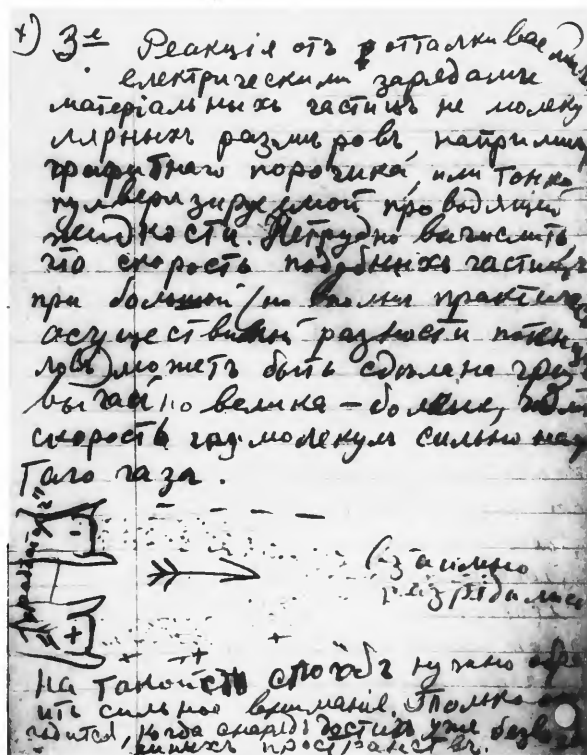 *) 3е Реакція отъ отталкиваемыхъ
електрическими зарядами
матеріальныхъ частицъ не молеку
лярныхъ размѣровъ, напримѣръ
графитнаго порошка, или тонко
пульверизируемой проводящей
жидкости. Нетрудно вычислить,
что скорость подобныхъ частицъ
при большой (но вполнѣ практич
осуществимой разности потенц
ловъ) можетъ быть сдѣлана чрез
вычайно велика – больше, чѣм
скорость газ. молекулъ сильно наг
таго газа.
- +
(взаимно
разрядались
На такой способъ нужно обра
тить сильное вниманіе. Только
годится, когда снарядъ достигъ уже безво
пространствъ